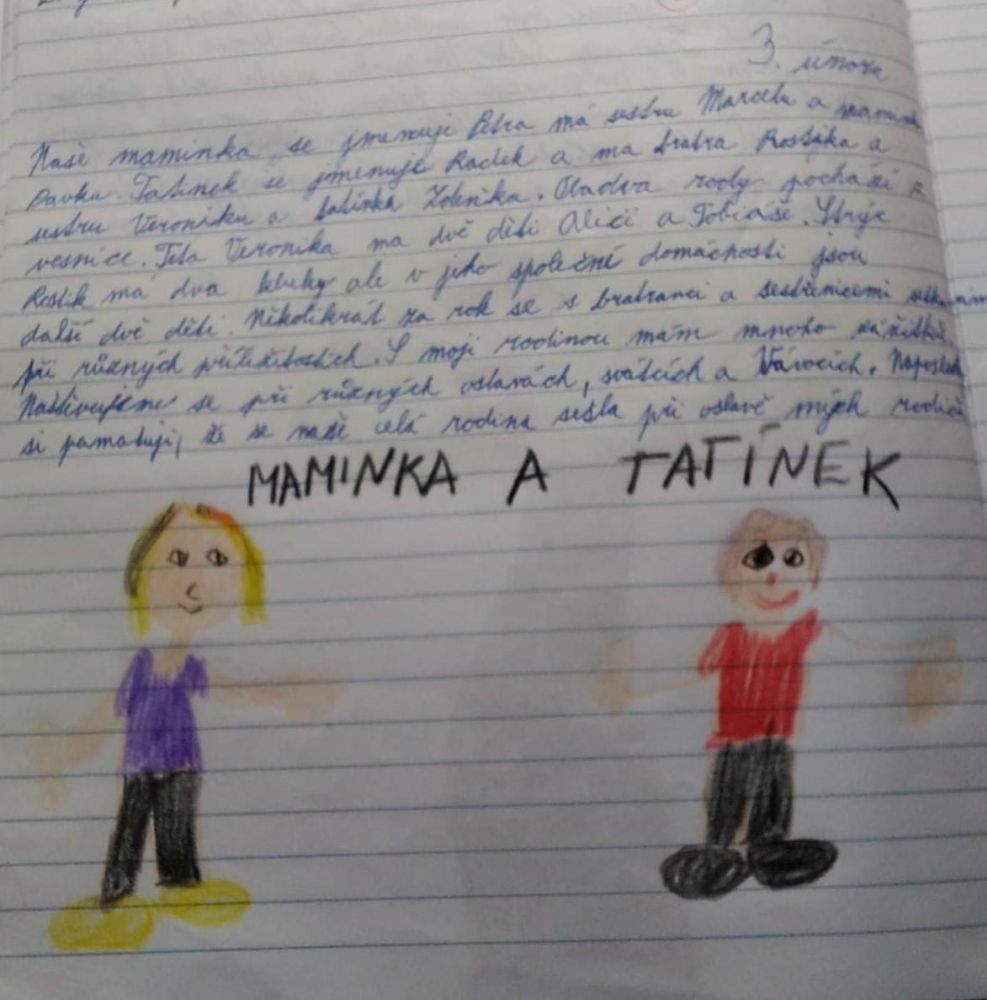 3. února
Naše maminka se jmenuje Petra má sestru Marcelu a
Pavku. Tatínek se jmenuje Radek a ma bratra Rostíka a
sestru Veroniku a tatínka Zdeňka. Oba dva rody pochází z
vesnice. Teta Veronika ma dvě děti Alici a Tobiáše. Strýc
Rostik má dva kluky ale v jeho společné domácnosti jsou
další dvě děti. Několikrát za rok se s bratranci a sestřenicemi
při různých příležitostích. S moji rodinou mám mnoho zážitků.
Navštěvujeme se při různých oslavách, svátcích a Vánocích. Naposled
si pamatuji, že se naše celá rodina sešla při oslavě mých rodičů
MAMINKA A TATÍNEK